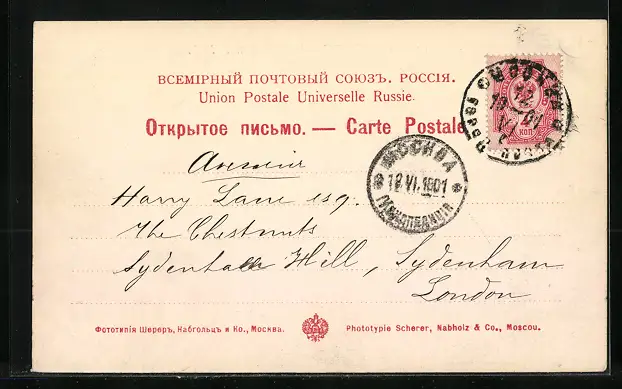 ВСЕМІРНЫЙ ПОЧТОВЫЙ СОЮЗЪ. РОССІЯ.
Union Postale Universelle Russie.
Открытое письмо. — Carte Postale
4 КОП
МОСКВА
18 VI.1901
Англія
Harry Lane esq.
The Chestnuts
Sydenham Hill, Sydenham
London
Фототипія Шереръ, Набгольцъ и Ко., Москва.
Phototypie Scherer, Nabholz & Co., Moscou.